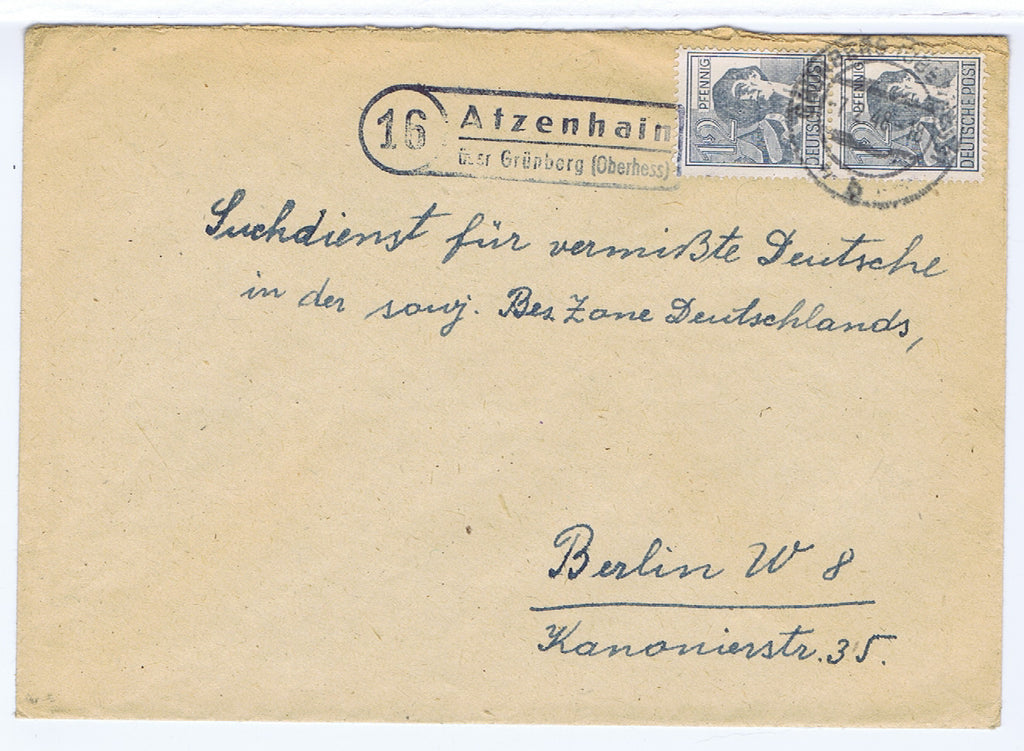 16
Atzenhain
über Grünberg (Oberhess)
12 PFENNIG DEUTSCHE POST
12 PFENNIG DEUTSCHE POST
b
Suchdienst für vermißte Deutsche
in der sowj. Bes. Zone Deutschlands,
Berlin W 8
Kanonierstr. 35.